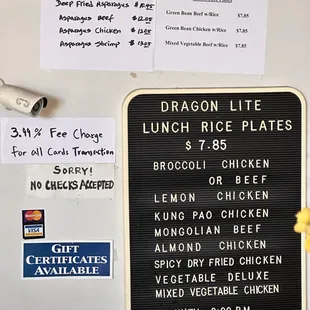 Deep Fried Asparagus
Asparagus Beef
Asparagus Chicken
Asparagus Shrimp
Green Bean Beef w/Rice $7.85
Green Bean Chicken w/Rice $7.85
Mixed Vegetable Beef w/Rice $7.85
3.99% Fee Charge
for all Cards Transaction
SORRY!
NO CHECKS ACCEPTED
MasterCard
VISA
GIFT
CERTIFICATES
AVAILABLE
DRAGON LITE
LUNCH RICE PLATES
$ 7.85
BROCCOLI CHICKEN
OR BEEF
LEMON CHICKEN
KUNG PAO CHICKEN
MONGOLIAN BEEF
ALMOND CHICKEN
SPICY DRY FRIED CHICKEN
VEGETABLE DELUXE
MIXED VEGETABLE CHICKEN